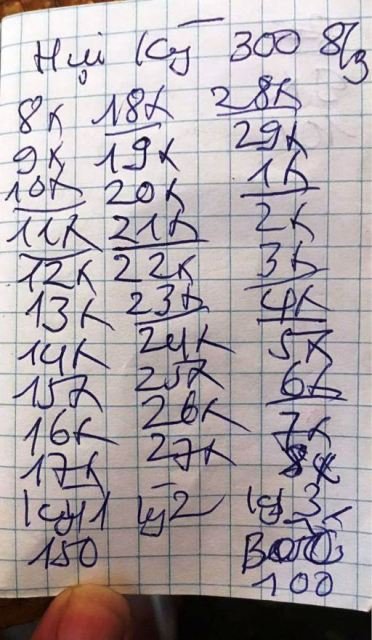 Hụi Ký 300 8/3
8K 18K 28K
9K 19K 29K
10K 20K 1K
11K 21K 2K
12K 22K 3K
13K 23K 4K
14K 24K 5K
15K 25K 6K
16K 26K 7K
17K 27K 8K
Ký 1 Ký 2 Ký 3
150
100